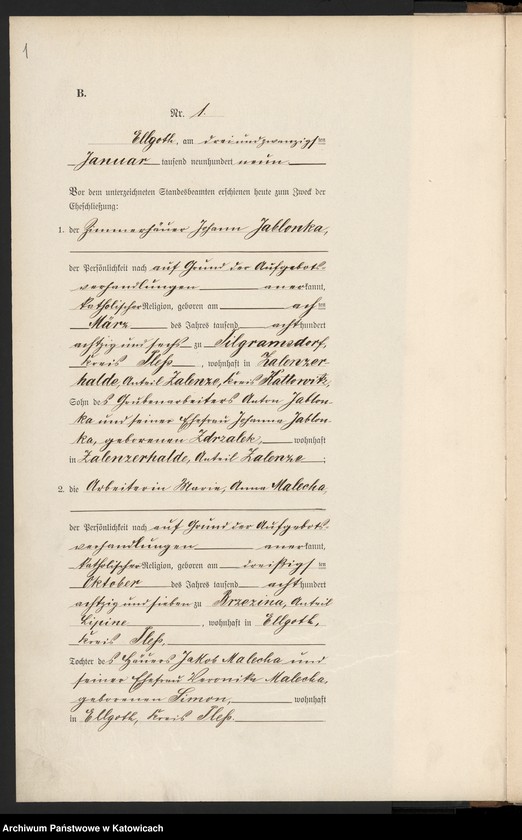 1
B.
Nr. 1.
Ellgoth, am dreiundzwanzigsten
Januar tausend neunhundert neun
Vor dem unterzeichneten Standesbeamten erschienen heute zum Zweck der
Eheschließung:
1. der Zimmerhäuer Johann Jablonka,
der Persönlichkeit nach auf Grund der Aufgebots-
verhandlungen anerkannt,
katholischer Religion, geboren am achten
März des Jahres tausend achthundert
achtzig und sechs zu Pilgramsdorf,
Kreis Pleß, wohnhaft in Zalenzer-
halde, Anteil Zalenze, Kreis Kattowitz,
Sohn des Grubenarbeiters Anton Jablon-
ka und seiner Ehefrau Johanna Jablon-
ka, geborenen Zdrzalek, wohnhaft
in Zalenzerhalde, Anteil Zalenze;
2. die Arbeiterin Marie, Anna Malecha,
der Persönlichkeit nach auf Grund der Aufgebots-
verhandlungen anerkannt,
katholischer Religion, geboren am dreißigsten
Oktober des Jahres tausend achthundert
achtzig und sieben zu Brzezina, Anteil
Lipine, wohnhaft in Ellgoth,
Kreis Pleß,
Tochter des Häuers Jakob Malecha und
seiner Ehefrau Veronika Malecha,
geborenen Simon, wohnhaft
in Ellgoth, Kreis Pleß.
Archiwum Państwowe w Katowicach